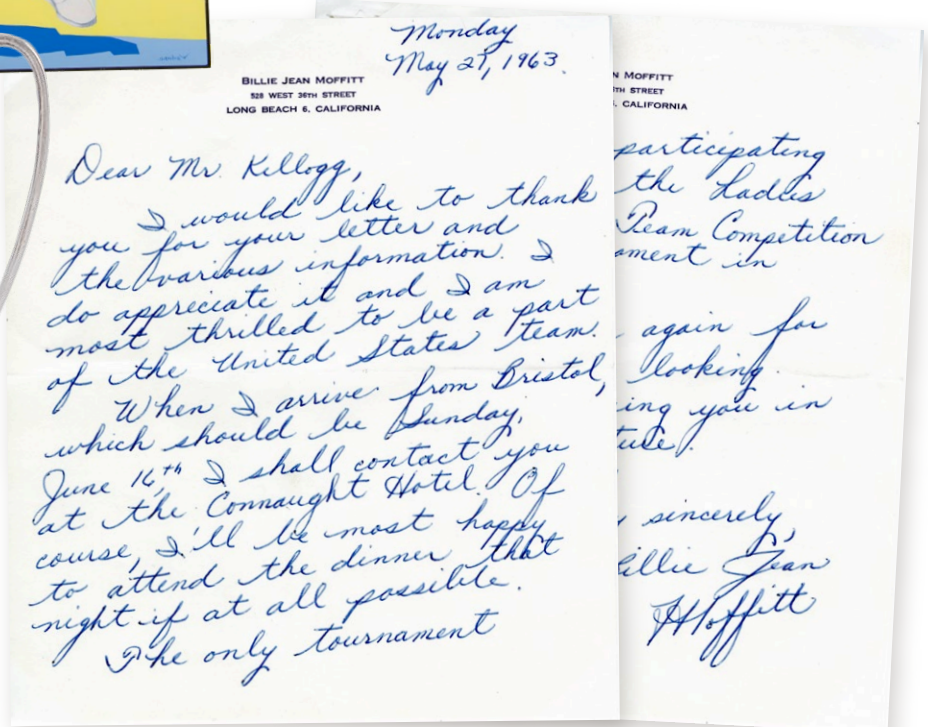 Monday
May 27, 1963.
BILLIE JEAN MOFFITT
528 WEST 36TH STREET
LONG BEACH 6, CALIFORNIA
Dear Mr. Killogg,
I would like to thank
you for your letter and
the various information. I
do appreciate it and I am
most thrilled to be a part
of the United States' team.
When I arrive from Bristol,
which should be Sunday,
June 16th, I shall contact you
at the Connaught Hotel. Of
course, I'll be most happy
to attend the dinner that
night if at all possible.
The only tournament
N MOFFITT
TH STREET
, CALIFORNIA
participating
the Ladies
Team Competition
ament in
again for
looking
ing you in
ture.
sincerely,
Billie Jean
Moffitt